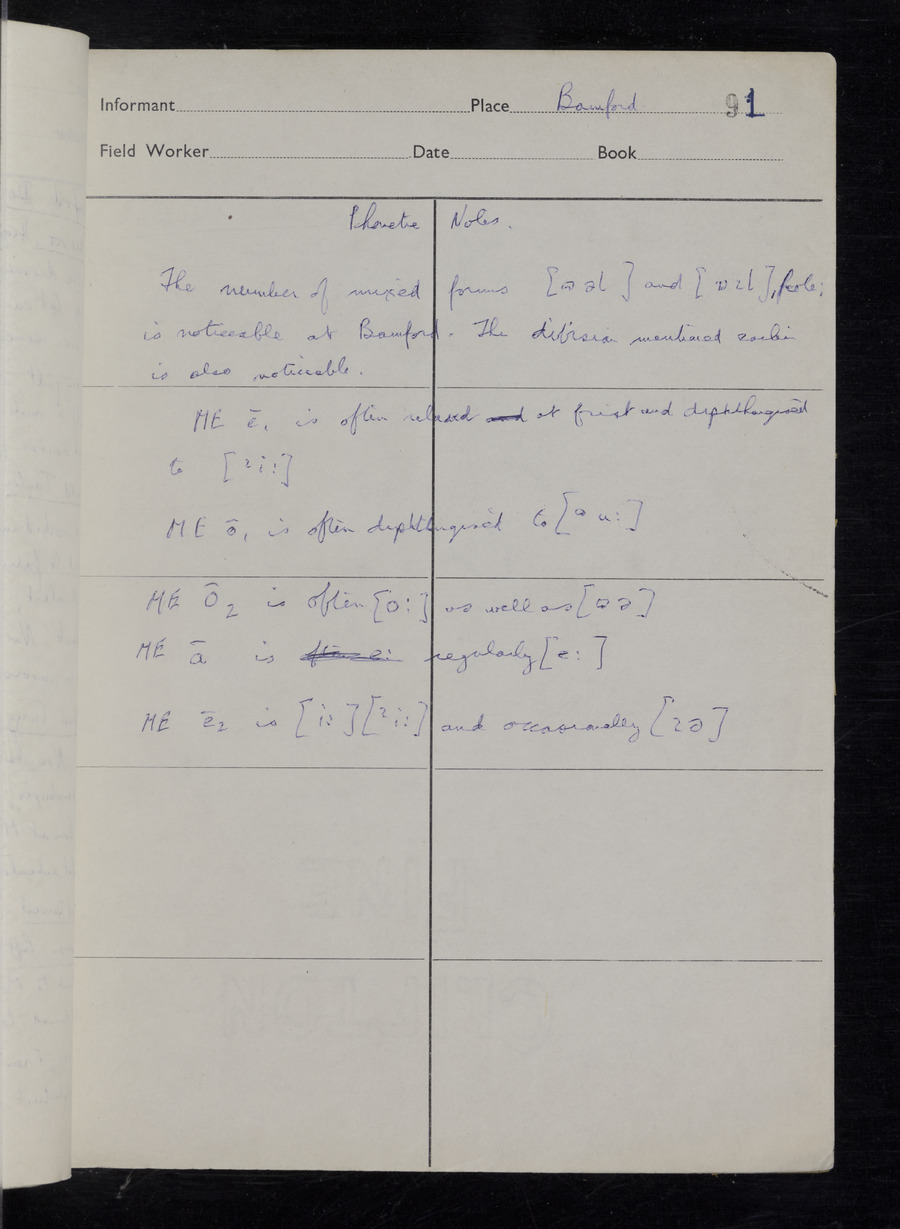 Informant Place Bamford 91
Field Worker Date Book
Phonetic Notes.
The number of mixed forms [ɒəl] and [ɒɪl], fole;
is noticeable at Bamford. The division mentioned earlier
is also noticeable.
ME ē₁ is often relaxed and at first and diphthongised
to [ɪi:]
ME ō₁ is often diphthongised to [ᵊu:]
ME ō₂ is often [o:] as well as [ɒə]
ME ā is regularly [e:]
ME ē₂ is [i:] [ɪi:] and occasionally [ɪə]